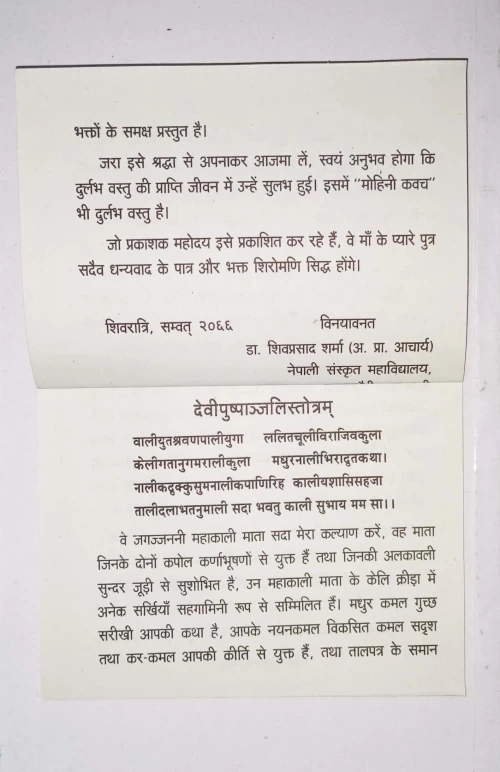 भक्तों के समक्ष प्रस्तुत है।
जरा इसे श्रद्धा से अपनाकर आजमा लें, स्वयं अनुभव होगा कि
दुर्लभ वस्तु की प्राप्ति जीवन में उन्हें सुलभ हुई। इसमें "मोहिनी कवच"
भी दुर्लभ वस्तु है।
जो प्रकाशक महोदय इसे प्रकाशित कर रहे हैं, वे माँ के प्यारे पुत्र
सदैव धन्यवाद के पात्र और भक्त शिरोमणि सिद्ध होंगे।
शिवरात्रि, सम्वत् २०६६ विनयावनत
डा. शिवप्रसाद शर्मा (अ. प्रा. आचार्य)
नेपाली संस्कृत महाविद्यालय,
देवीपुष्पाञ्जलिस्तोत्रम्
वालीयुतश्रवणपालीयुगा ललितचूलीविराजिवकुला
केलीगतानुगमरालीकुला मधुरनालीभिरादृतकथा।
नालीकदृक्कुसुमनालीकपाणिरिह कालीयशासिसहजा
तालीदलाभतनुमाली सदा भवतु काली सुभाय मम सा।।
वे जगज्जननी महाकाली माता सदा मेरा कल्याण करें, वह माता
जिनके दोनों कपोल कर्णाभूषणों से युक्त हैं तथा जिनकी अलकावली
सुन्दर जूड़ी से सुशोभित है, उन महाकाली माता के केलि क्रीड़ा में
अनेक सर्खियाँ सहगामिनी रूप से सम्मिलित हैं। मधुर कमल गुच्छ
सरीखी आपकी कथा है, आपके नयनकमल विकसित कमल सदृश
तथा कर-कमल आपकी कीर्ति से युक्त हैं, तथा तालपत्र के समान